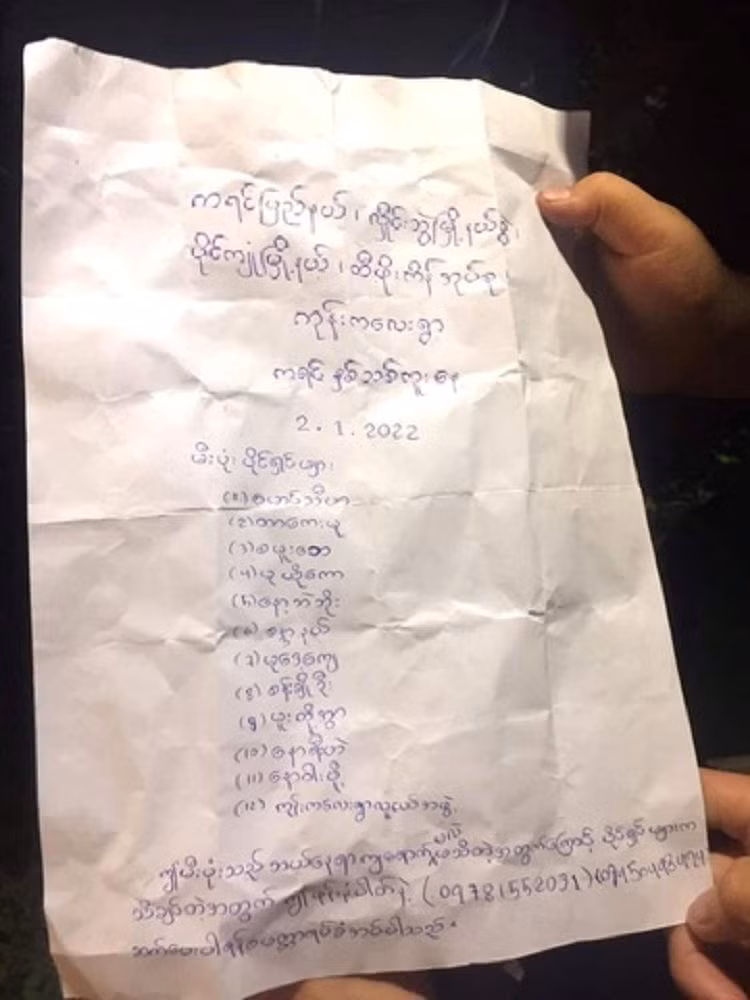 ကရင်ပြည်နယ်၊ လှိုင်းဘွဲမြို့နယ်ခွဲ၊
ပိုင်ကျုံမြို့နယ်၊ ထီဖိုးကိန်အုပ်စု၊
ကျုန်းကလေးရွာ
ကရင် နှစ်သစ်ကူးနေ့
2.1.2022
မီးပုံး ပိုင်ရှင်များ
(၁)
(၂) တာကေးပု
(၃) စဖူးစေ
(၄) ပု ယိုကော
(၅) နော့ဘဲဘိုး
(၆)
(၇) ပုဒေကျေ
(၈) စန်းချိုဦး
(၉) ဖူးတိုကွာ
(၁၀)
(၁၁) နော်ဝါးဖို့
(၁၂) ကျုံးကလေးရွာလူငယ်အဖွဲ့
ဤမီးပုံးသည် ဘယ်နေရာကျရောက်မှန်းမသိတဲ့အတွက်ကြောင့် ပိုင်ရှင်များက
သိချင်တဲ့အတွက် ဤဖုန်းနံပါတ်နဲ့ (09781552031)
ဆက်ပေးပါရန်မေတ္တာရပ်ခံအပ်ပါသည်။